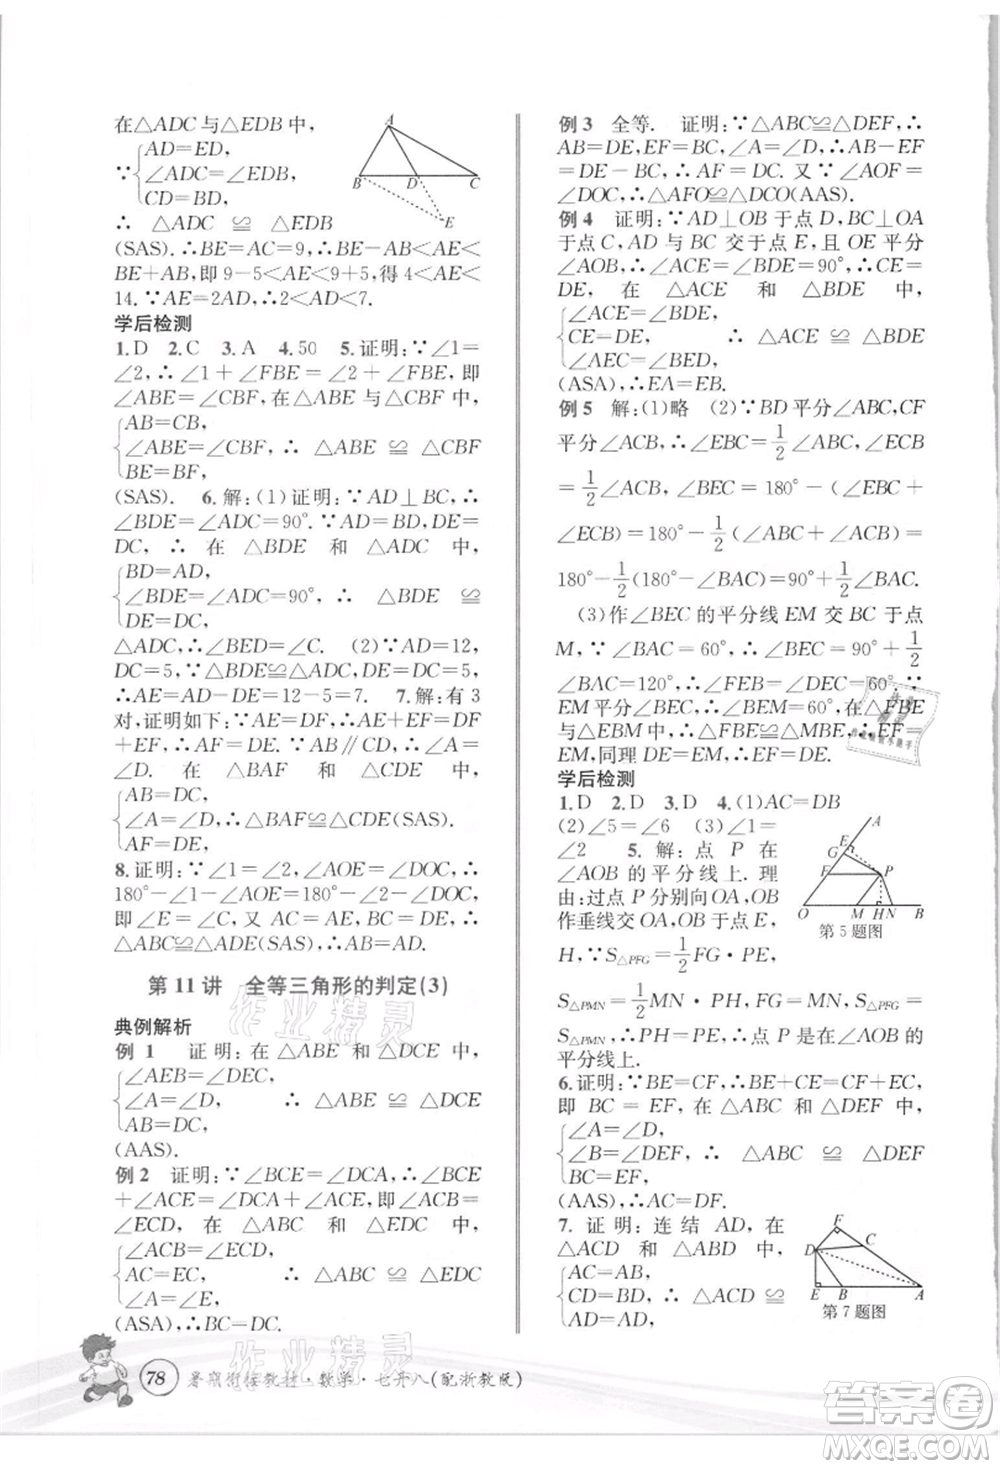 在△ADC与△EDB中，
AD=ED,
∵ ∠ADC=∠EDB,
CD=BD,
A
B D C
E
∴ △ADC ≌ △EDB
(SAS). ∴BE=AC=9,∴BE-AB<AE<
BE+AB,即9-5<AE<9+5,得4<AE<
14.∵AE=2AD,∴2<AD<7.
学后检测
1.D 2.C 3.A 4.50 5.证明:∵∠1=
∠2,∴∠1+∠FBE=∠2+∠FBE,即
∠ABE=∠CBF,在△ABE与△CBF中,
AB=CB,
∠ABE=∠CBF, ∴ △ABE ≌ △CBF
BE=BF,
(SAS). 6.解:(1)证明:∵AD⊥BC,∴
∠BDE=∠ADC=90°.∵AD=BD,DE=
DC, ∴ 在 △BDE 和 △ADC 中,
BD=AD,
∠BDE=∠ADC=90°, ∴ △BDE ≌
DE=DC,
△ADC,∴∠BED=∠C. (2)∵AD=12,
DC=5,∵△BDE≌△ADC,∴DE=DC=5,
∴AE=AD-DE=12-5=7. 7.解:有3
对,证明如下:∵
AB∥DC,∴
在 △BAF 和 △DCE 中,
AB=DC,
∠A=∠C, ∴△BAF≌△DCE(SAS).
AF=CE,
8.证明:∵∠1=∠2,∠AOE=∠DOC,∴
180°-∠1-∠AOE=180°-∠2-∠DOC,
即∠E=∠C,又 AC=AE,BC=DE,
∴△ABC≌△ADE(SAS),∴AB=AD.
第11讲 全等三角形的判定(3)
典例解析
例 1 证明:在△ABE和△DCE中,
∠AEB=∠DEC,
∠A=∠D, ∴ △ABE ≌ △DCE
AB=DC,
(AAS).
例 2 证明:∵∠BCE=∠DCA,∴∠BCE
+∠ACE=∠DCA+∠ACE,即∠ACB=
∠ECD, 在 △ABC 和 △EDC 中,
∠ACB=∠ECD,
AC=EC, ∴ △ABC ≌ △EDC
∠A=∠E,
(ASA),∴BC=DC.
例 3 全等. 证明:∵△ABC≌△DEF,∴
AB=DE,EF=BC,∠A=∠D,∴AB-EF
=DE-BC,∴AF=DC.又∵∠AOF=
∠DOC,∴△AFO≌△DCO(AAS).
例 4 证明:∵AD⊥OB于点D,BC⊥OA
于点C,AD与BC交于点E,且OE平分
∠AOB,∴∠ACE=∠BDE=90°,CE=
DE, 在 △ACE 和 △BDE 中,
∠ACE=∠BDE,
CE=DE, ∴ △ACE ≌ △BDE
∠AEC=∠BED,
(ASA),∴EA=EB.
例 5 解:(1)略 (2)∵BD平分∠ABC,CF
平分∠ACB,∴∠EBC=1/2∠ABC,∠ECB
=1/2∠ACB,∴∠BEC=180°-(∠EBC+
∠ECB)=180°-1/2(∠ABC+∠ACB)=
180°-1/2(180°-∠BAC)=90°+1/2∠BAC.
(3)作∠BEC的平分线EM交BC于点
M,∵∠BAC=60°,∴∠BEC=90°+1/2
∠BAC=120°,∴∠FEB=∠DEC=60°.∵
EM平分∠BEC,∴∠BEM=60°,在△FBE
与△EBM中,∴△FBE≌△MBE,∴EF=
EM,同理DE=EM,∴EF=DE.
学后检测
1.D 2.D 3.D 4.(1)AC=DB
(2)∠5=∠6 (3)∠1=
∠2 5.解:点P在
∠AOB的平分线上.理
由:过点P分别向OA,OB
作垂线交OA,OB于点E,
A
E
G
F P
O M H N B
第5题图
H, ∵ S△PFG=1/2FG·PE,
S△PMN=1/2MN·PH,FG=MN,S△PFG=
S△PMN,∴PH=PE,∴点P是在∠AOB的
平分线上.
6.证明:∵BE=CF,∴BE+EC=CF+EC,
即BC=EF,在△ABC和△DEF中,
∠A=∠D,
∠B=∠DEF, ∴ △ABC ≌ △DEF
BC=EF,
(AAS),∴AC=DF.
7.证明:连结AD,在
△ACD 和 △ABD 中,
AC=AB,
CD=BD, ∴
AD=AD,
F
C
D
E B A
第7题图
78 暑期衔接教材·数学·七升八(配浙教版)
作业精灵
作业精灵
答案圈
MXQE.COM